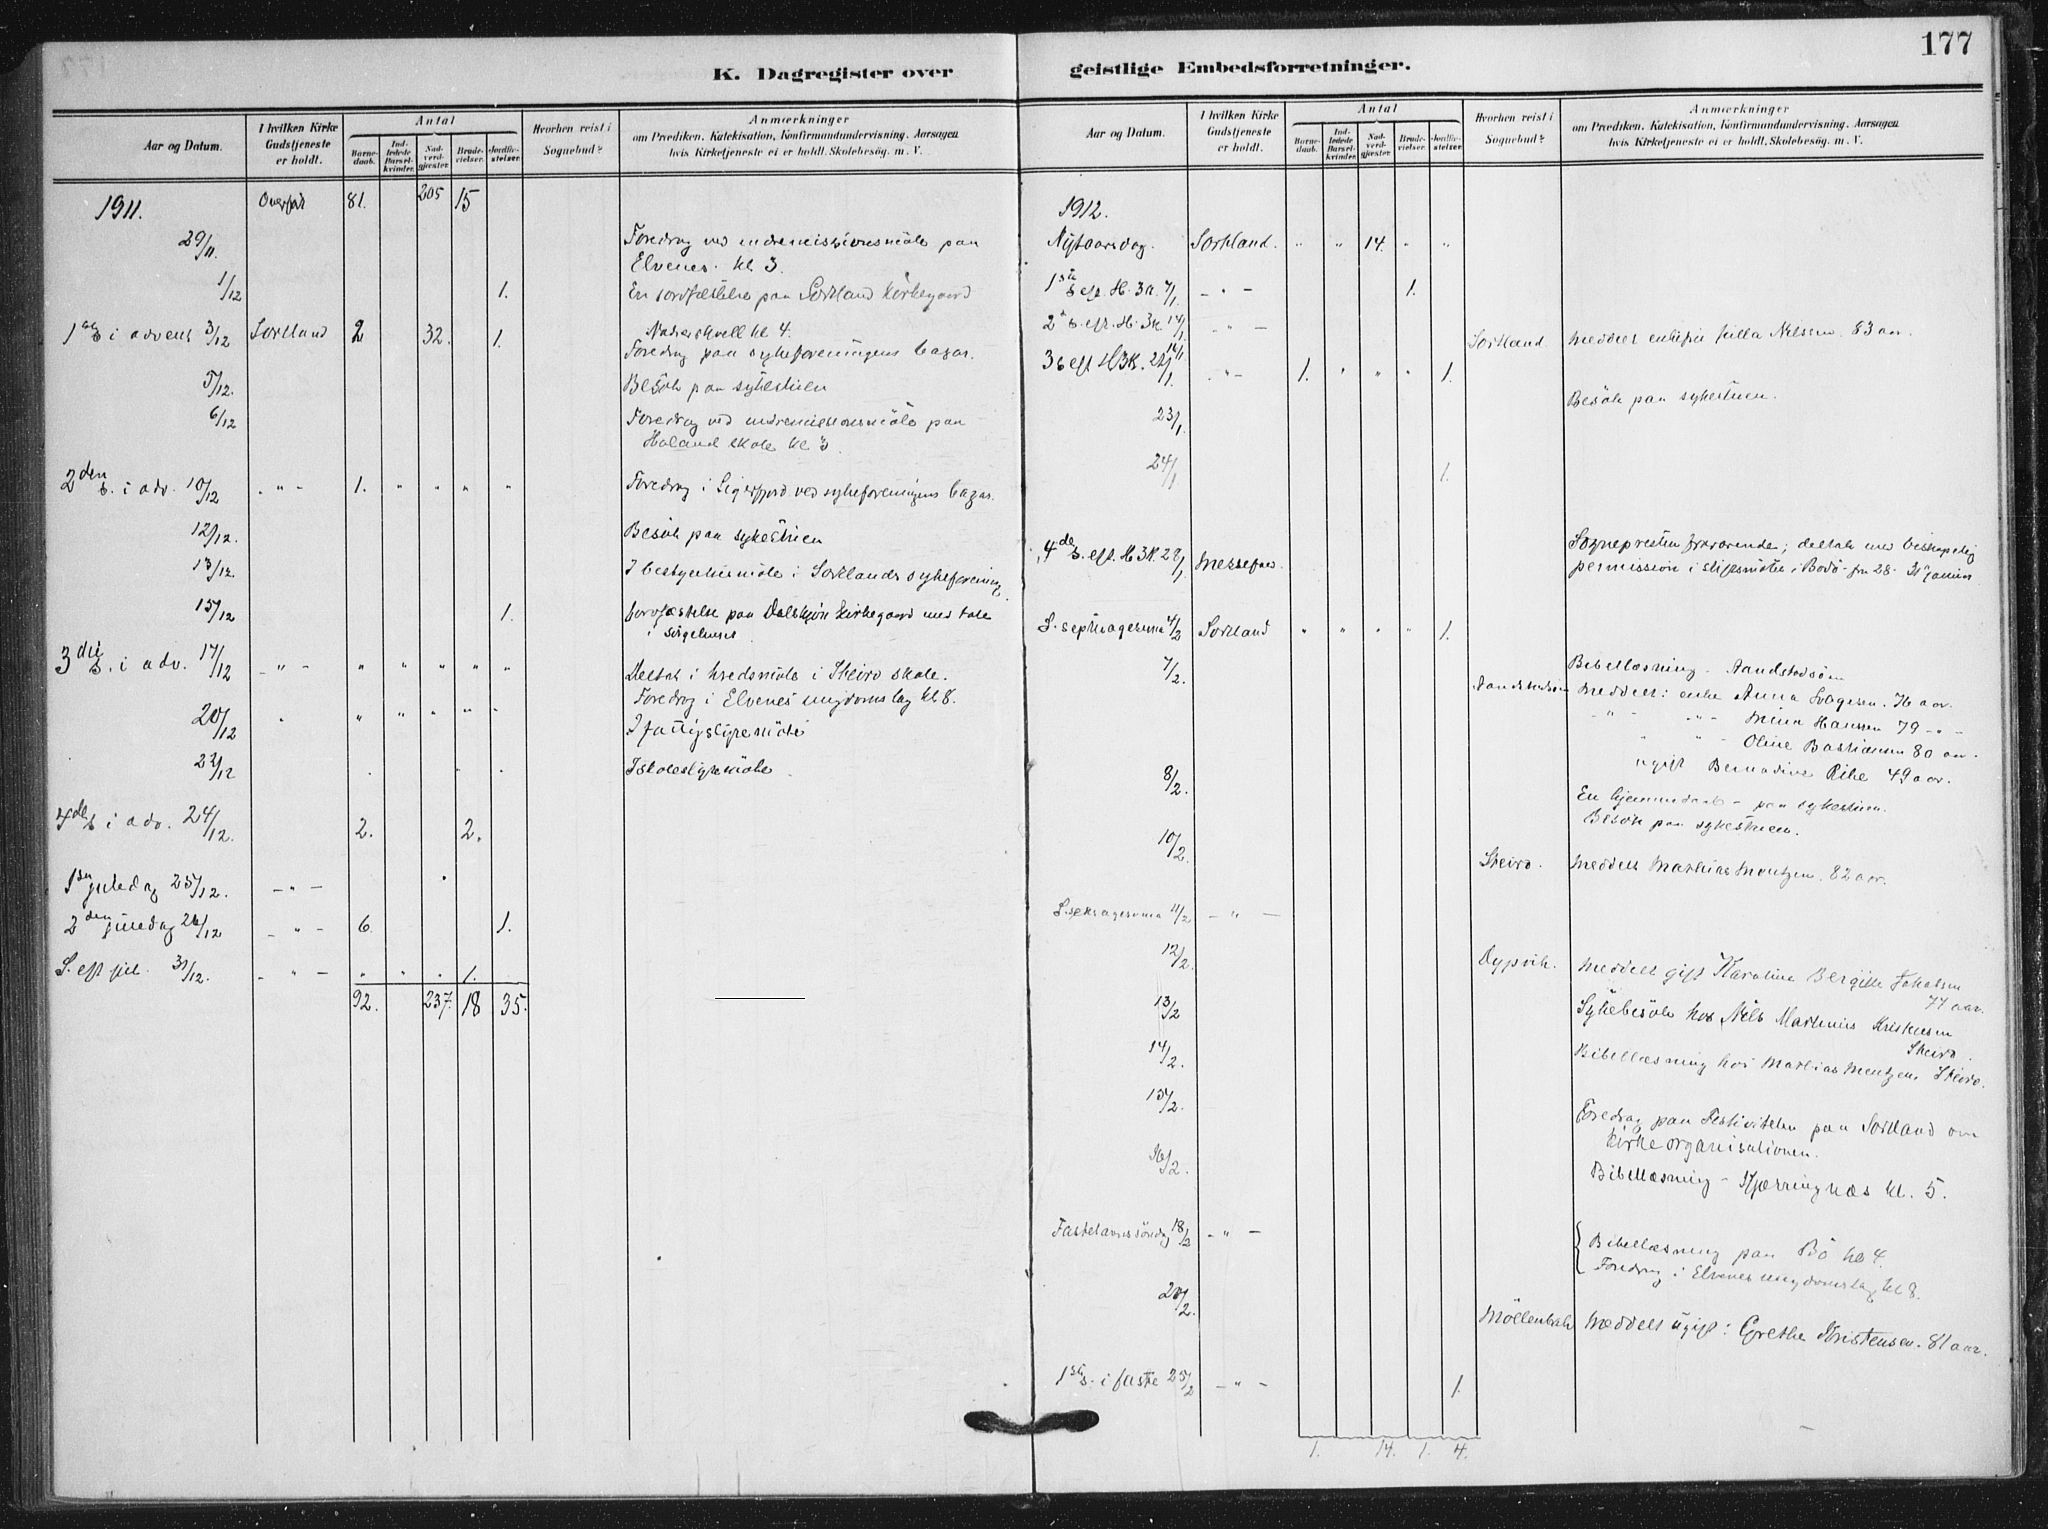 177
K. Dagregister over
geistlige Embedsforretninger.
Aar og Datum.
I hvilken Kirke Gudstjeneste er holdt.
Antal
Barne-daab.
Ind-ledede Barsel-kvinder.
Nad-verd-gjester.
Brude-vielser.
Jordfæ-stelser.
Hvorhen reist i Sognebud?
Anmærkninger
om Prædiken, Katekisation, Konfirmandundervisning. Aarsagen
hvis Kirketjeneste ei er holdt. Skolebesøg. m. V.
1911. Overført 81. 205 15
29/11 Foredrag ved indremissionsmöte paa
Elvenes. kl 3.
1/12 1. En jordfæstelse paa Sortland kirkegaard
1ste S i advent 3/12 Sortland 2 32. 1. kl 4.
Foredrag paa sykeforeningens bazar.
5/12. Besök paa sykestuen
6/12 Foredrag ved indremissionsmöte paa
Holand skole kl 3.
2den S. i adv. 10/12 - " - 1. " " " " Foredrag i Sigerfjord ved sykeforeningens bazar.
12/12. Besök paa sykestuen
13/12. I bestyrelsesmöte i Sortlands sykeforening
15/12 1. Jordfæstelse paa kirkegaard med tale
i sörgehuset
3die S. i adv. 17/12 - " - " " " " " Deltat i kredsmöte i Steiro skole.
Foredrag i Elvenes ungdomslag kl 8.
20/12 " " " " " I fattigstyremöte
22/12 I skolestyremöte
4de S i adv. 24/12. 2. 2.
1ste juledag 25/12. - " -
2den juledag 26/12 - " - 6. 1.
S. eft jul. 31/12. - " - " " . 1.
92. 237. 18 35.
Aar og Datum.
I hvilken Kirke Gudstjeneste er holdt.
Antal
Barne-daab.
Ind-ledede Barsel-kvinder.
Nad-verd-gjester.
Brude-vielser.
Jordfæ-stelser.
Hvorhen reist i Sognebud?
Anmærkninger
om Prædiken, Katekisation, Konfirmandundervisning. Aarsagen
hvis Kirketjeneste ei er holdt. Skolebesøg. m. V.
1912.
Nytaarsdag. Sortland. " " 14. " "
1ste S eft. H. 3 K. 7/1 - " - 1.
2 S. eft. H. 3 K. 14/1 - " -
Sortland. Nelssen. 83 aar.
3 S eft H 3 K. 21/1. - " - 1. " " " 1.
Besök paa sykestuen.
23/1.
24/1 1.
4de S. eft. H 3 K. 28/1 Messefald. Sognepresten fraværende; deltok med biskopelig
permission i stiftsmötet i Bodö fra 28-31 januar
S. septuagesima 4/2 Sortland " " " " 1.
7/2. Bibellæsning - Aandstadsöen
meddelt: enke Anna 76 aar.
- " - - " - Mina Hanssen 79 - " -
" " - Oline Bastiansen 80 aar.
ugift Bernadine 49 aar.
8/2. En hjemmedaab - paa sykestuen.
Besök paa sykestuen.
10/2. Steiro. meddelt Mathias Mentzen. 82 aar.
S. seksagesima 11/2 - " -
12/2. Dypvik. meddelt gift Karoline Bergitte Jakobsen
77 aar.
13/2 Sykebesök hos Nils Marthinus Kristensen
Steiro.
14/2. Bibellæsning hos Mathias Mentzen, Steiro.
15/2. Foredrag paa Festiviteten paa Sortland om
kirkeorganisationen.
16/2. Bibellæsning - Kjærringnæs kl. 5.
Fastelavnssöndag 18/2 - " - Bibellæsning paa Bö kl 4.
Foredrag i Elvenes ungdomslag kl 8.
20/2. Möllenbak meddelt ugift: Grethe Kristensen. 81 aar.
1ste S. i faste 25/2 - " - 1.
1. 14. 1. 4.